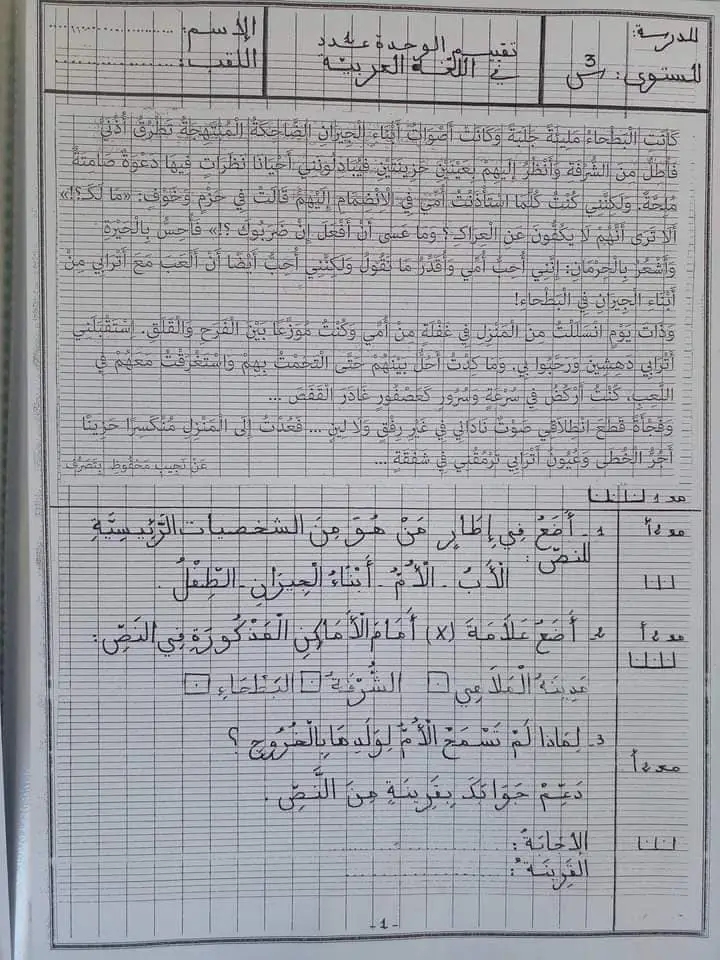 المدرسة:
المستوى: 3 س
تقييم الوحدة عدد 1
في اللغة العربية
الإسم: ....................
اللقب: ....................
كَانَتِ الْبَطْحَاءُ مَلِيئَةً جَلَبَةً وَكَانَتْ أَصْوَاتُ أَبْنَاءِ الْجِيرَانِ الضَّاحِكَةُ الْمُبْتَهِجَةُ تَطْرُقُ أُذُنَيَّ
فَأُطِلُّ مِنَ الشُّرْفَةِ وَأَنْظُرُ إِلَيْهِمْ بِعَيْنَيْنِ حَزِينَتَيْنِ فَيُبَادِلُونَنِي أَحْيَانًا نَظَرَاتٍ فِيهَا دَعْوَةٌ صَامِتَةٌ
مُلِحَّةٌ. وَلَكِنَّنِي كُنْتُ كُلَّمَا اسْتَأْذَنْتُ أُمِّي فِي الْاِنْضِمَامِ إِلَيْهِمْ قَالَتْ فِي حَزْمٍ وَخَوْفٍ: «مَا لَكَ؟!»
أَلَا تَرَى أَنَّهُمْ لَا يَكُفُّونَ عَنِ الْعِرَاكِ؟ وَمَا عَسَى أَنْ أَفْعَلَ إِنْ ضَرَبُوكَ ؟!» فَأُحِسُّ بِالْحَيْرَةِ
وَأَشْعُرُ بِالْحِرْمَانِ: إِنَّنِي أُحِبُّ أُمِّي وَأُقَدِّرُ مَا تَقُولُ وَلَكِنَّنِي أُحِبُّ أَيْضًا أَنْ أَلْعَبَ مَعَ أَتْرَابِي مِنْ
أَبْنَاءِ الْجِيرَانِ فِي الْبَطْحَاءِ!
وَذَاتَ يَوْمٍ انْسَلَلْتُ مِنَ الْمَنْزِلِ فِي غَفْلَةٍ مِنْ أُمِّي وَكُنْتُ مُوَزَّعًا بَيْنَ الْفَرَحِ وَالْقَلَقِ. اِسْتَقْبَلَنِي
أَتْرَابِي دَهِشِينَ وَرَحَّبُوا بِي. وَمَا كِدْتُ أَحُلُّ بَيْنَهُمْ حَتَّى الْتَحَمْتُ بِهِمْ وَاسْتَغْرَقْتُ مَعَهُمْ فِي
اللَّعِبِ، كُنْتُ أَرْكُضُ فِي سُرْعَةٍ وَسُرُورٍ كَعُصْفُورٍ غَادَرَ الْقَفَصَ ...
وَفَجْأَةً قَطَعَ انْطِلَاقِي صَوْتٌ نَادَانِي فِي غَيْرِ رِفْقٍ وَلَا لِينٍ ... فَعُدْتُ إِلَى الْمَنْزِلِ مُنْكَسِرًا حَزِينًا
أَجُرُّ الْخُطَى وَعُيُونُ أَتْرَابِي تَرْمُقُنِي فِي شَفَقَةٍ ...
عَنْ نَجِيب مَحْفُوظ بِتَصَرُّف
مع 1
مع 2 أ
1 - أَضَعُ فِي إِطَارٍ مَنْ هُوَ مِنَ الشخصيات الرَّئِيسِيَّةِ
للنصّ:
الْأَبُ - الْأُمُّ - أَبْنَاءُ الْجِيرَانِ - الطِّفْلُ.
مع 2 أ
2 أَضَعُ عَلَامَةَ (X) أَمَامَ الْأَمَاكِنِ الْمَذْكُورَةِ فِي النَّصِّ:
مَدِينَةُ الْمَلَاهِي □ الشُّرْفَةُ □ الْبَطْحَاءِ □
3 - لِمَاذَا لَمْ تَسْمَحْ الْأُمُّ لِوَلَدِهَا بِالْخُرُوجِ ؟
مع 2 أ
دَعِّمْ جَوَابَكَ بِقَرِينَةٍ مِنَ النَّصِّ.
الإجابَةُ: ....................
القَرِينَةُ: ....................
- 1 -